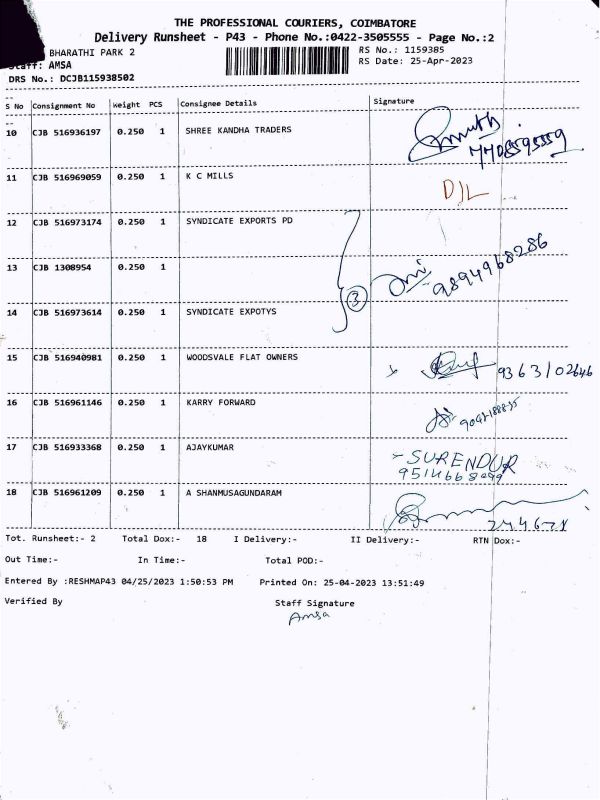 THE PROFESSIONAL COURIERS, COIMBATORE
Delivery Runsheet - P43 - Phone No.:0422-3505555 - Page No.:2
BHARATHI PARK 2
RS No.: 1159385
Staff: AMSA
RS Date: 25-Apr-2023
DRS No.: DCJB115938502
S No Consignment No Weight PCS Consignee Details Signature
10 CJB 516936197 0.250 1 SHREE KANDHA TRADERS
11 CJB 516969059 0.250 1 K C MILLS
12 CJB 516973174 0.250 1 SYNDICATE EXPORTS PD
13 CJB 1308954 0.250 1
3 9894968286
14 CJB 516973614 0.250 1 SYNDICATE EXPOTYS
15 CJB 516940981 0.250 1 WOODSVALE FLAT OWNERS
9363102646
16 CJB 516961146 0.250 1 KARRY FORWARD
17 CJB 516933368 0.250 1 AJAYKUMAR
SURENDUR
18 CJB 516961209 0.250 1 A SHANMUSAGUNDARAM
Tot. Runsheet:- 2 Total Dox:- 18 I Delivery:- II Delivery:- RTN Dox:-
Out Time:- In Time:- Total POD:-
Entered By :RESHMAP43 04/25/2023 1:50:53 PM Printed On: 25-04-2023 13:51:49
Verified By Staff Signature
Amsa